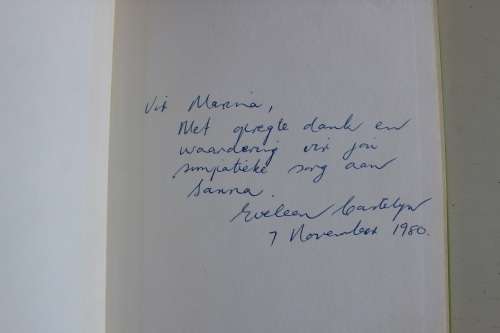 Vir Marina,
Met opregte dank en
waardering vir jou
simpatieke sorg aan
Sanna.
Eveleen Castelyn
7 November 1980.